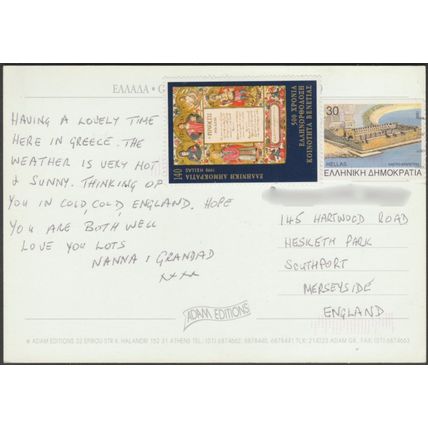 ΕΛΛΑΔΑ • G
HAVING A LOVELY TIME
HERE IN GREECE. THE
WEATHER IS VERY HOT
& SUNNY. THINKING OF
YOU IN COLD, COLD, ENGLAND. HOPE
YOU ARE BOTH WELL
LOVE YOU LOTS
NANNA & GRANDAD
xxx
500 ΧΡΟΝΙΑ
ΕΛΛΗΝΟΡΘΟΔΟΞΗ
ΚΟΙΝΟΤΗΤΑ ΒΕΝΕΤΙΑΣ
ΕΛΛΗΝΙΚΗ ΔΗΜΟΚΡΑΤΙΑ
140
1998 HELLAS
30
HELLAS
ΕΛΛΗΝΙΚΗ ΔΗΜΟΚΡΑΤΙΑ
145 HARTWOOD ROAD
HESKETH PARK
SOUTHPORT
MERSEYSIDE
ENGLAND
ADAM EDITIONS
ADAM EDITIONS 32 EPIROU STR & HALANDRI 152 31 ATHENS TEL: (01) 6874662, 6878440, 6878441 TLX: 214223 ADAM GR, FAX: (01) 6874663